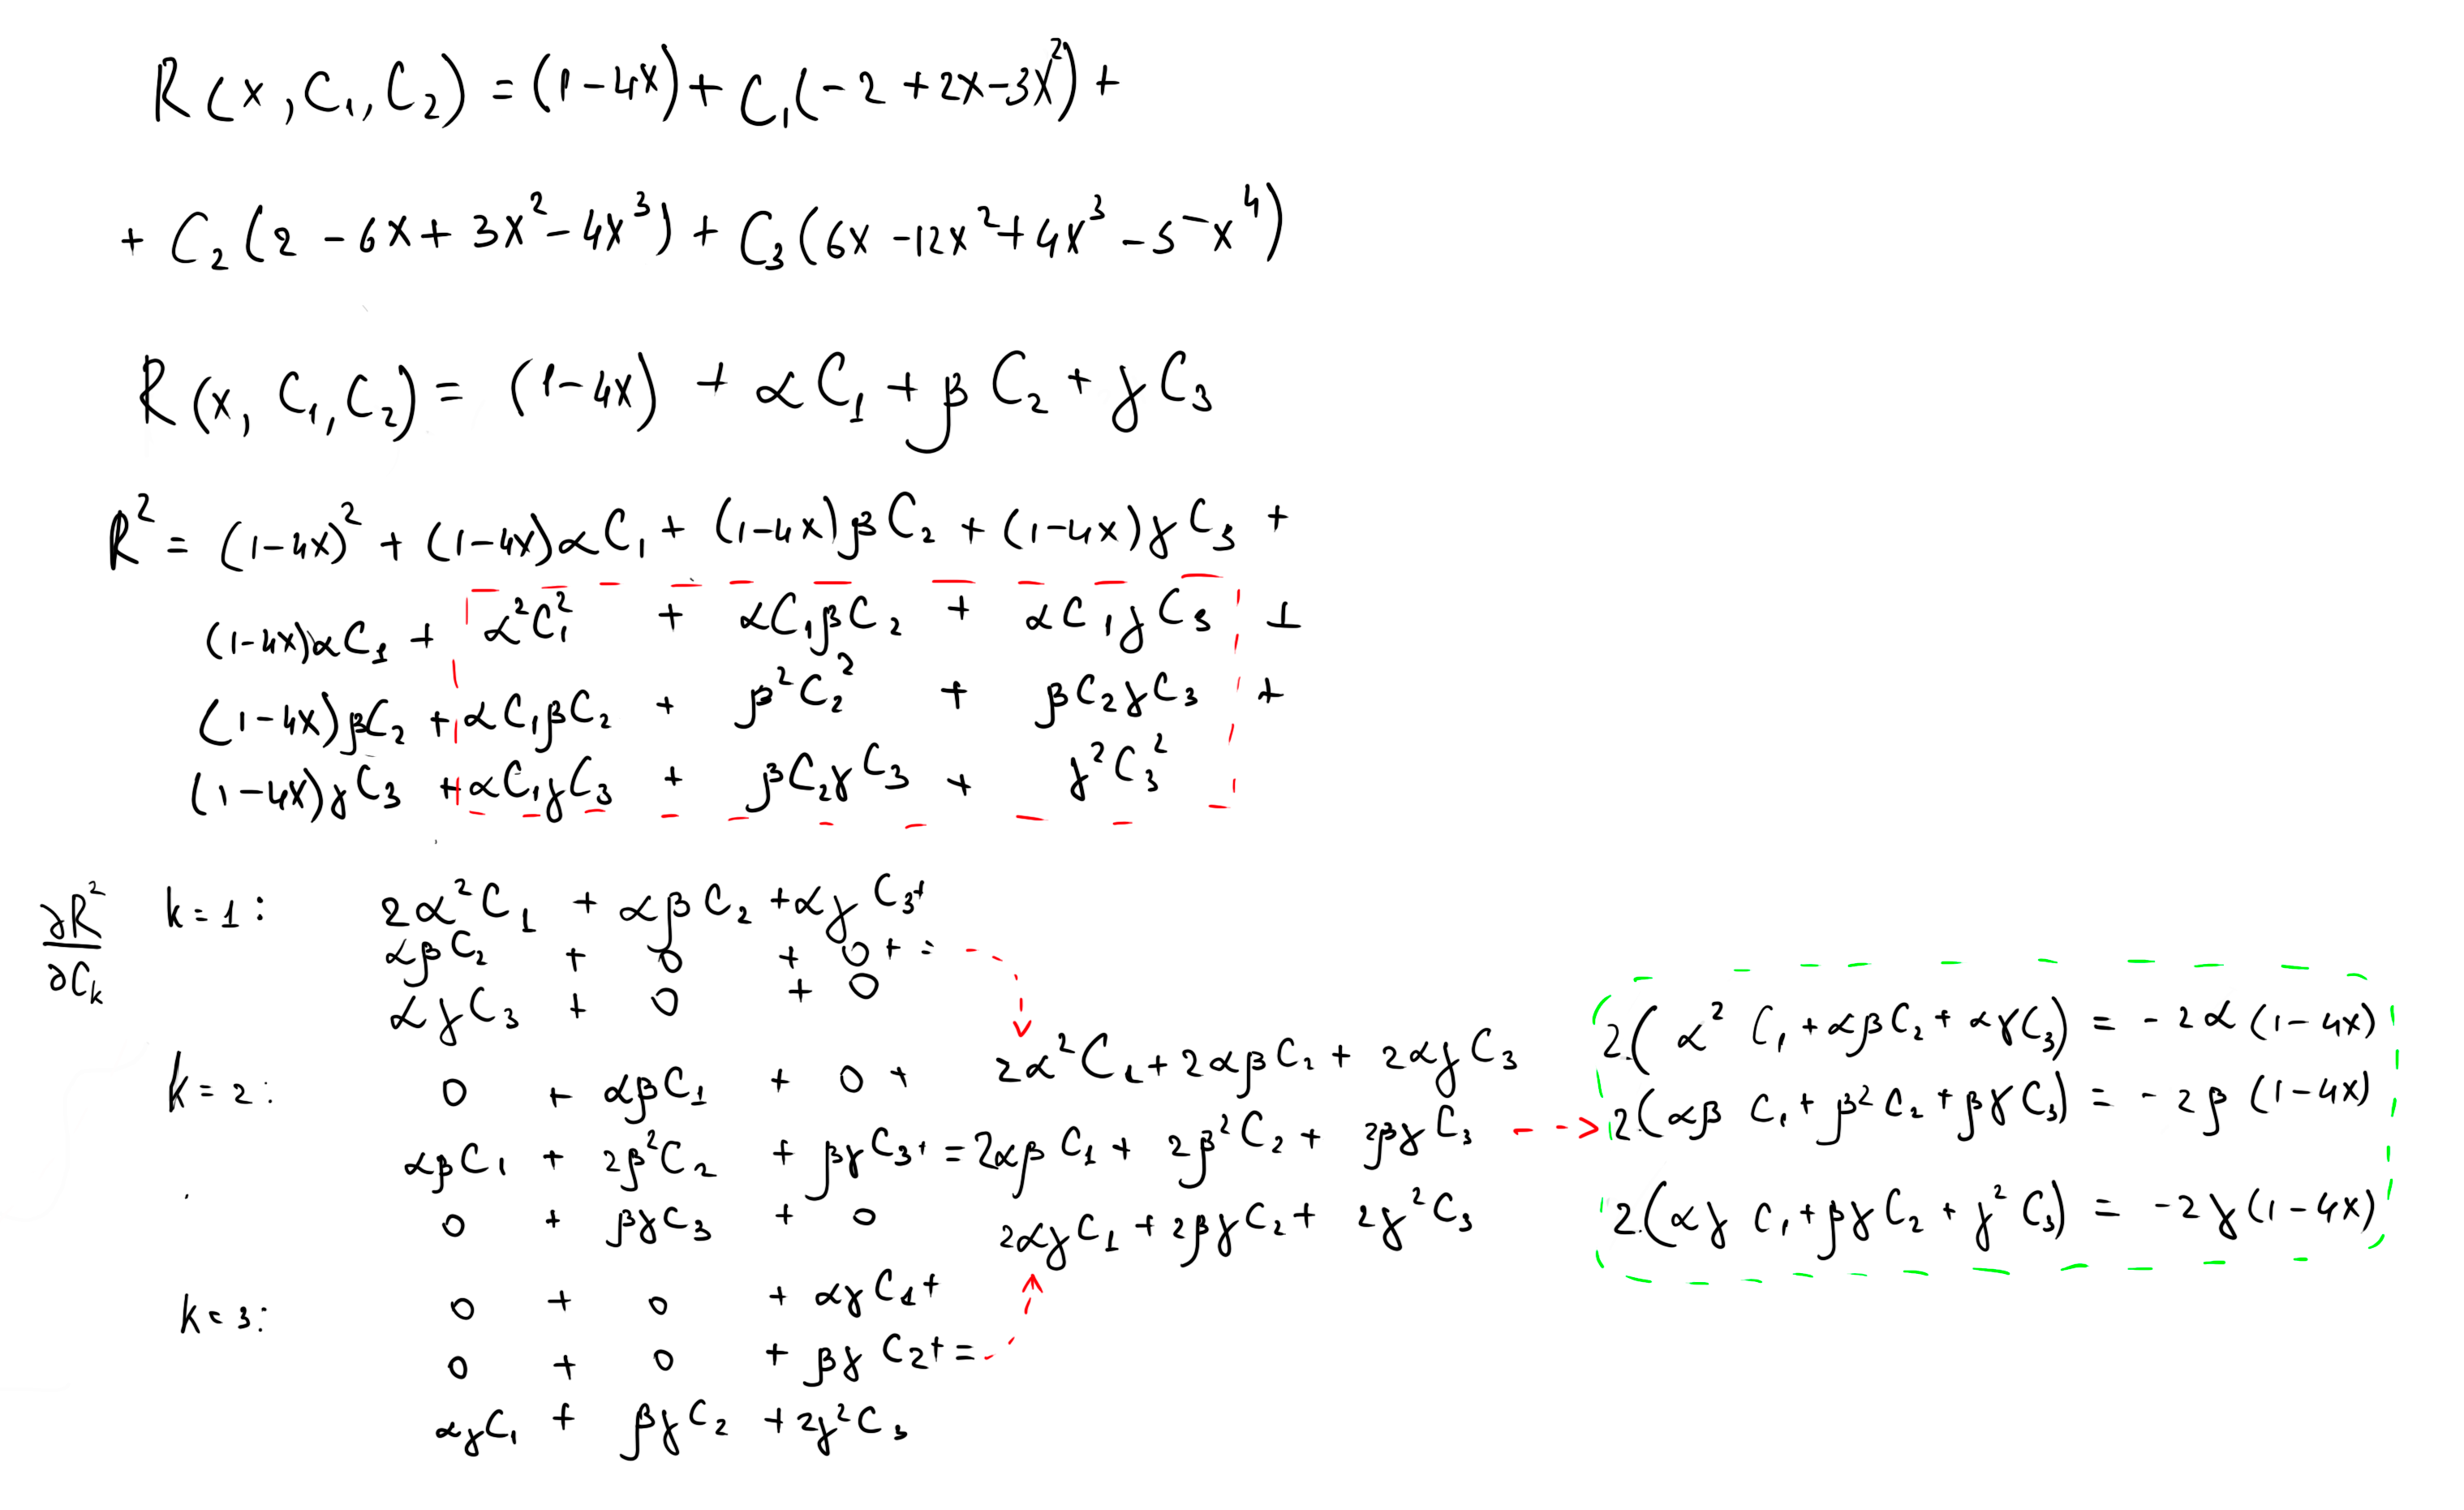 R(x, C₁, C₂) = (1-4x) + C₁(-2 + 2x - 3x²) +
+ C₂(2 - 6x + 3x² - 4x³) + C₃(6x - 12x² + 4x³ - 5x⁴)
R(x, C₁, C₂) = (1-4x) + αC₁ + βC₂ + γC₃
R² = (1-4x)² + (1-4x)αC₁ + (1-4x)βC₂ + (1-4x)γC₃ +
(1-4x)αC₁ + α²C₁² + αC₁βC₂ + αC₁γC₃ +
(1-4x)βC₂ + αC₁βC₂ + β²C₂² + βC₂γC₃ +
(1-4x)γC₃ + αC₁γC₃ + βC₂γC₃ + γ²C₃²
∂R²/∂Cₖ
k=1: 2α²C₁ + αβC₂ + αγC₃ +
αβC₂ + 0 + 0 + =
αγC₃ + 0 + 0
k=2: 0 + αβC₁ + 0 +
αβC₁ + 2β²C₂ + βγC₃ + =
0 + βγC₃ + 0
k=3: 0 + 0 + αγC₁ +
0 + 0 + βγC₂ + =
αγC₁ + βγC₂ + 2γ²C₃
2α²C₁ + 2αβC₂ + 2αγC₃
2αβC₁ + 2β²C₂ + 2βγC₃
2αγC₁ + 2βγC₂ + 2γ²C₃
2.(α² C₁ + αβC₂ + αγC₃) = -2α(1-4x)
2(αβ C₁ + β²C₂ + βγC₃) = -2β(1-4x)
2.(αγ C₁ + βγC₂ + γ²C₃) = -2γ(1-4x)